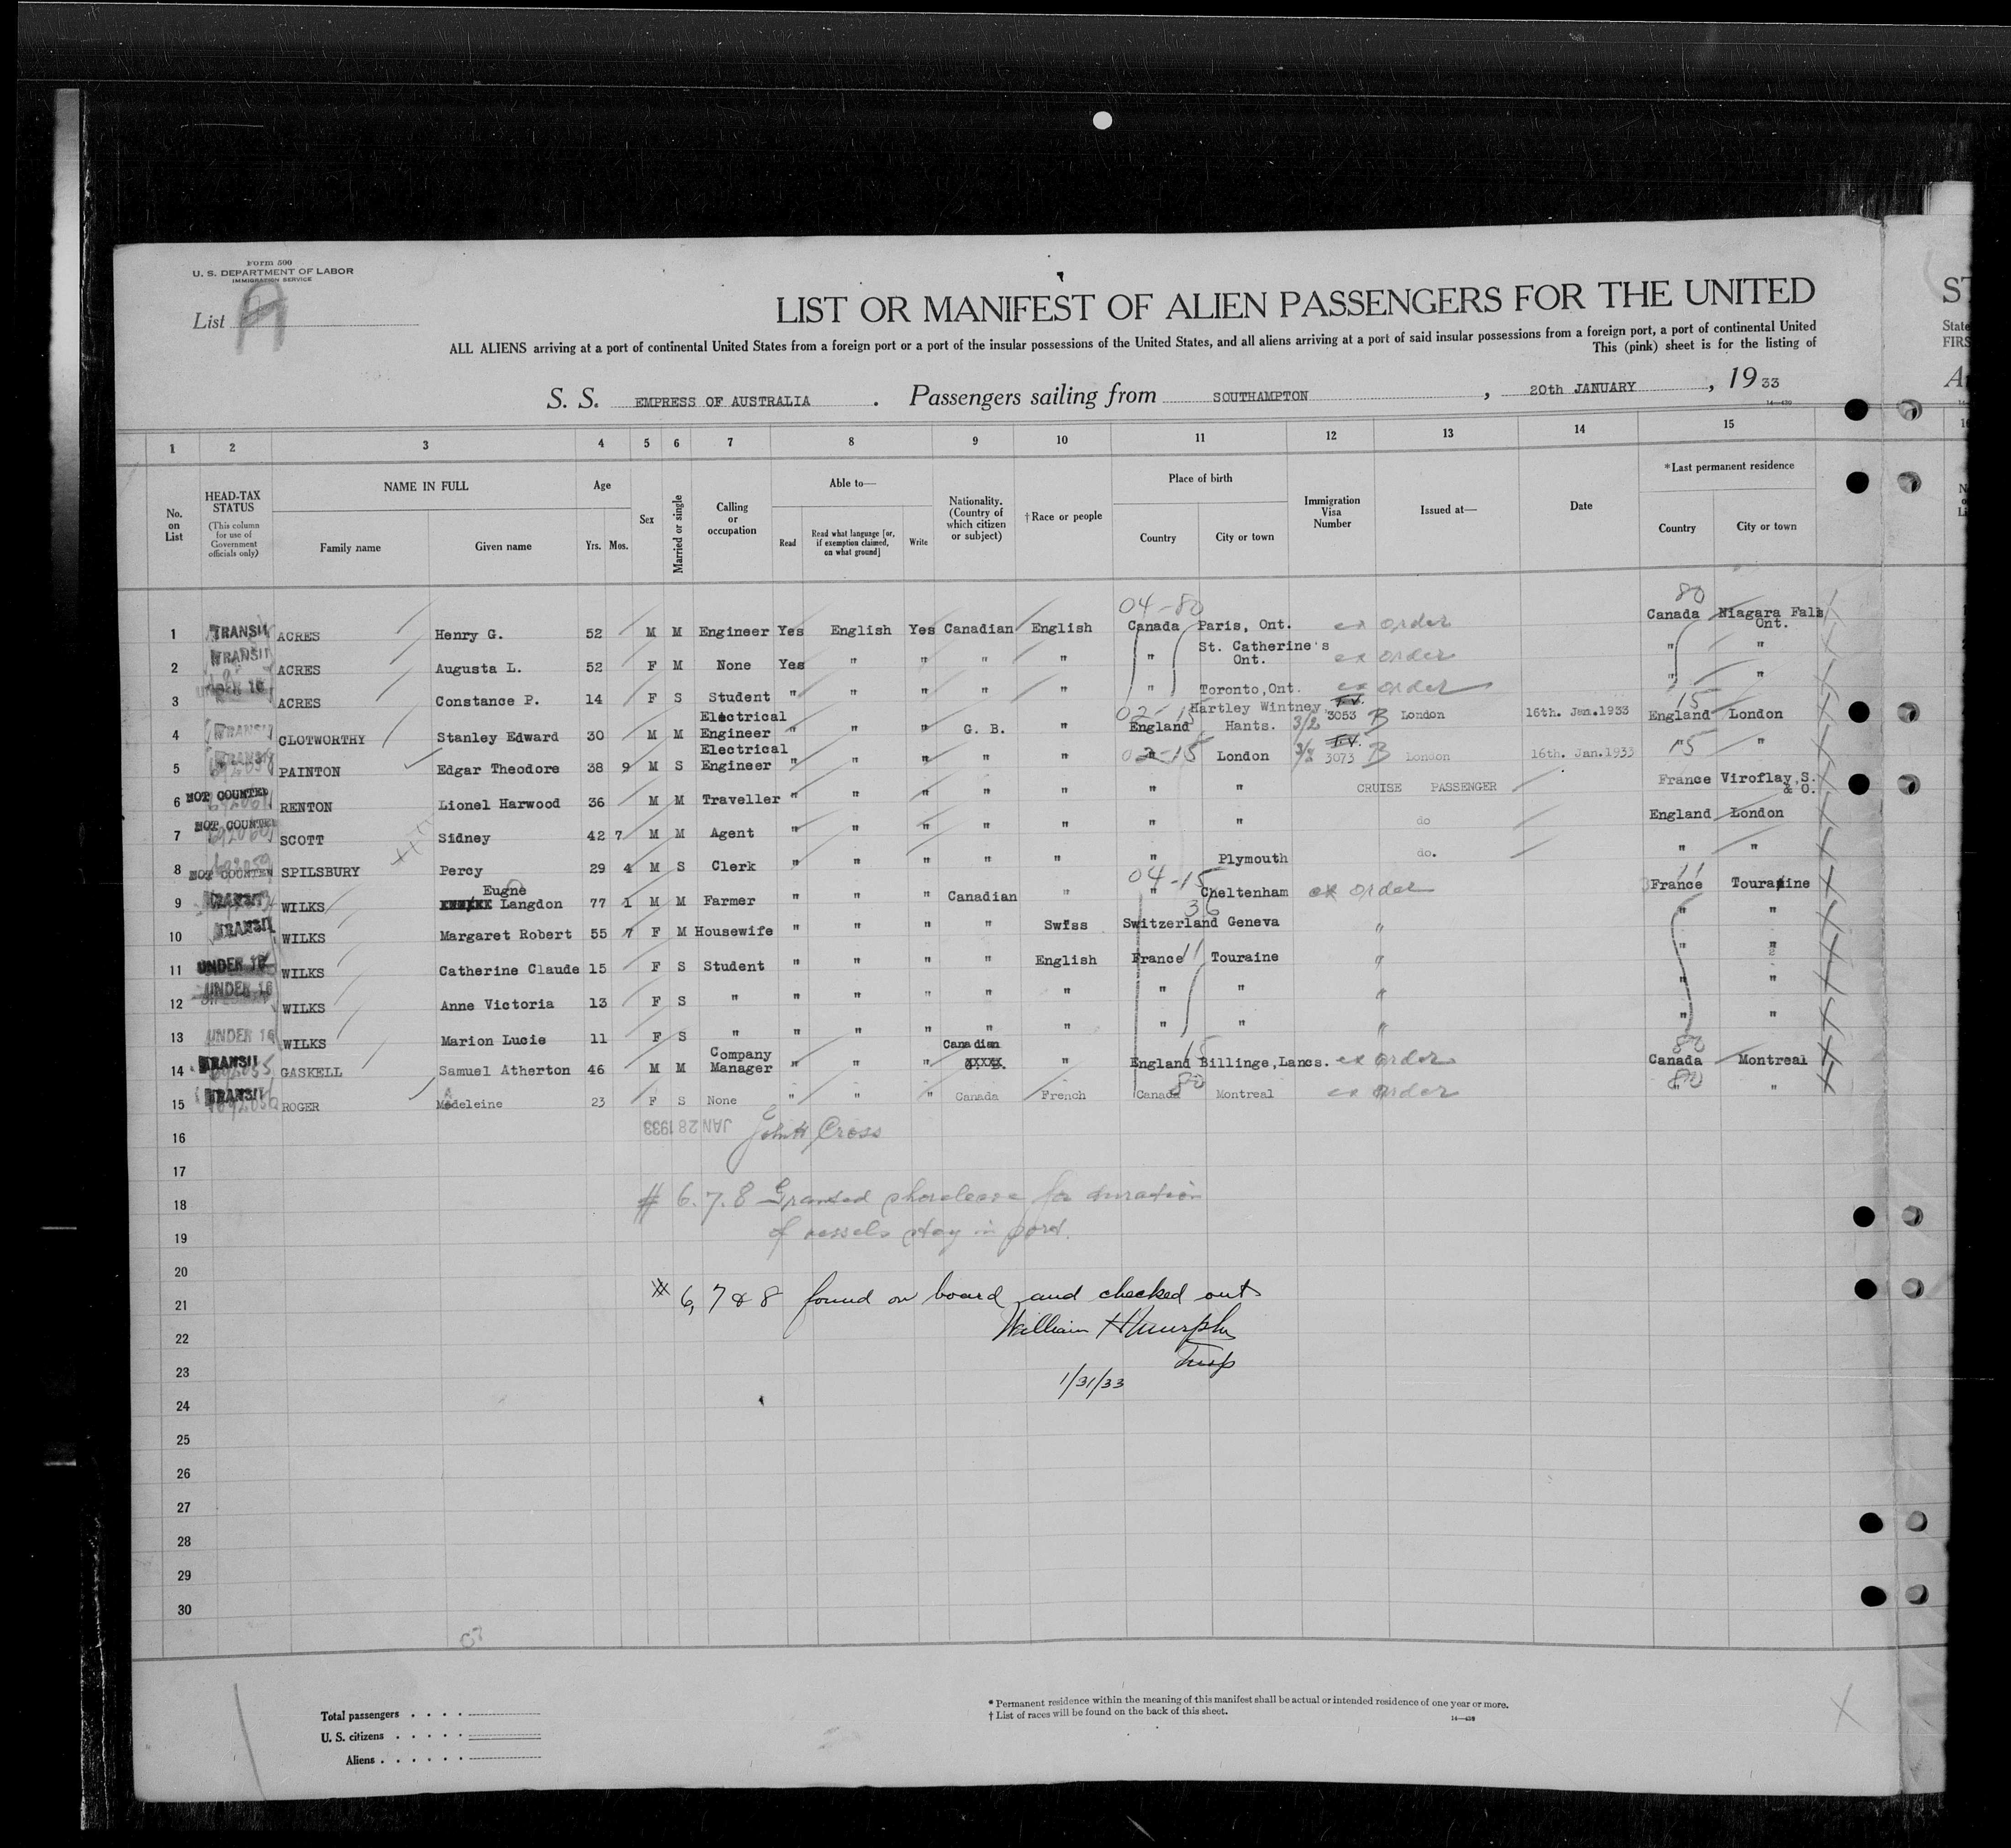 Form 500
U. S. DEPARTMENT OF LABOR
IMMIGRATION SERVICE
List A
LIST OR MANIFEST OF ALIEN PASSENGERS FOR THE UNITED
ALL ALIENS arriving at a port of continental United States from a foreign port or a port of the insular possessions of the United States, and all aliens arriving at a port of said insular possessions from a foreign port, a port of continental United
This (pink) sheet is for the listing of
S. S. EMPRESS OF AUSTRALIA . Passengers sailing from SOUTHAMPTON , 20th JANUARY , 1933
ST
State
FIRS
1 2 3 4 5 6 7 8 9 10 11 12 13 14 15
No. on List
HEAD-TAX STATUS (This column for use of Government officials only)
NAME IN FULL Family name Given name
Age Yrs. Mos.
Sex
Married or single
Calling or occupation
Able to— Read Read what language [or, if exemption claimed, on what ground] Write
Nationality. (Country of which citizen or subject)
†Race or people
Place of birth Country City or town
Immigration Visa Number
Issued at—
Date
*Last permanent residence Country City or town
04-80 80
1 TRANSIT ACRES Henry G. 52 M M Engineer Yes English Yes Canadian English Canada Paris, Ont. ex order Canada Niagara Falls Ont.
2 TRANSIT ACRES Augusta L. 52 F M None Yes " " " " " St. Catherine's Ont. ex order " "
3 UNDER 16 ACRES Constance P. 14 F S Student " " " " " " Toronto,Ont. ex order " "
4 TRANSIT CLOTWORTHY Stanley Edward 30 M M Electrical Engineer " " " G. B. " 02-15 England Hartley Wintney Hants. 3/2 3053 B London 16th. Jan.1933 15 England London
5 TRANSIT PAINTON Edgar Theodore 38 9 M S Electrical Engineer " " " " " 02-15 " London 3073 B London 16th. Jan.1933 15 " "
6 NOT COUNTED RENTON Lionel Harwood 36 M M Traveller " " " " " " " CRUISE PASSENGER France Viroflay,S. & O.
7 NOT COUNTED SCOTT Sidney 42 7 M M Agent " " " " " " " do England London
8 NOT COUNTED SPILSBURY Percy 29 4 M S Clerk " " " " " " Plymouth do. " "
9 TRANSIT WILKS Eugne Langdon 77 1 M M Farmer " " " Canadian " 04-15 " Cheltenham ex order 11 France Touraine
10 TRANSIT WILKS Margaret Robert 55 7 F M Housewife " " " " Swiss 36 Switzerland Geneva " " "
11 UNDER 16 WILKS Catherine Claude 15 F S Student " " " " English France 11 Touraine " " "
12 UNDER 16 WILKS Anne Victoria 13 F S " " " " " " " " " " "
13 UNDER 16 WILKS Marion Lucie 11 F S " " " " " " " " " " "
14 TRANSIT GASKELL Samuel Atherton 46 M M Company Manager " " " Canadian " 15 England Billinge,Lancs. ex order 80 Canada Montreal
15 TRANSIT ROGER Madeleine 23 F S None " " " Canada French 80 Canada Montreal ex order 80 " "
16 JAN 28 1933 John H Cross
17
18 # 6.7.8 Granted shoreleave for duration
19 of vessels stay in port.
20
21 # 6, 7 & 8 found on board and checked out
22 William H Murphy
23 Insp
1/31/33
24
25
26
27
28
29
30
Total passengers . . . .
U. S. citizens . . . . .
Aliens . . . . . .
* Permanent residence within the meaning of this manifest shall be actual or intended residence of one year or more.
† List of races will be found on the back of this sheet.